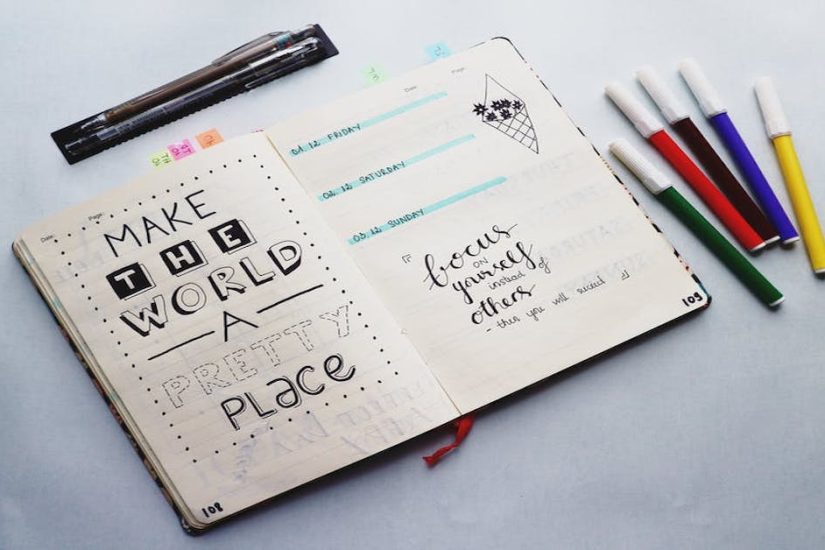 Date:
Page:
MAKE
THE
WORLD
A
PRETTY
PLACE
108
Date:
Page:
01.12. FRIDAY
02.12. SATURDAY
03.12. SUNDAY
focus
ON
yourself
instead of
others
- then you will succeed
109